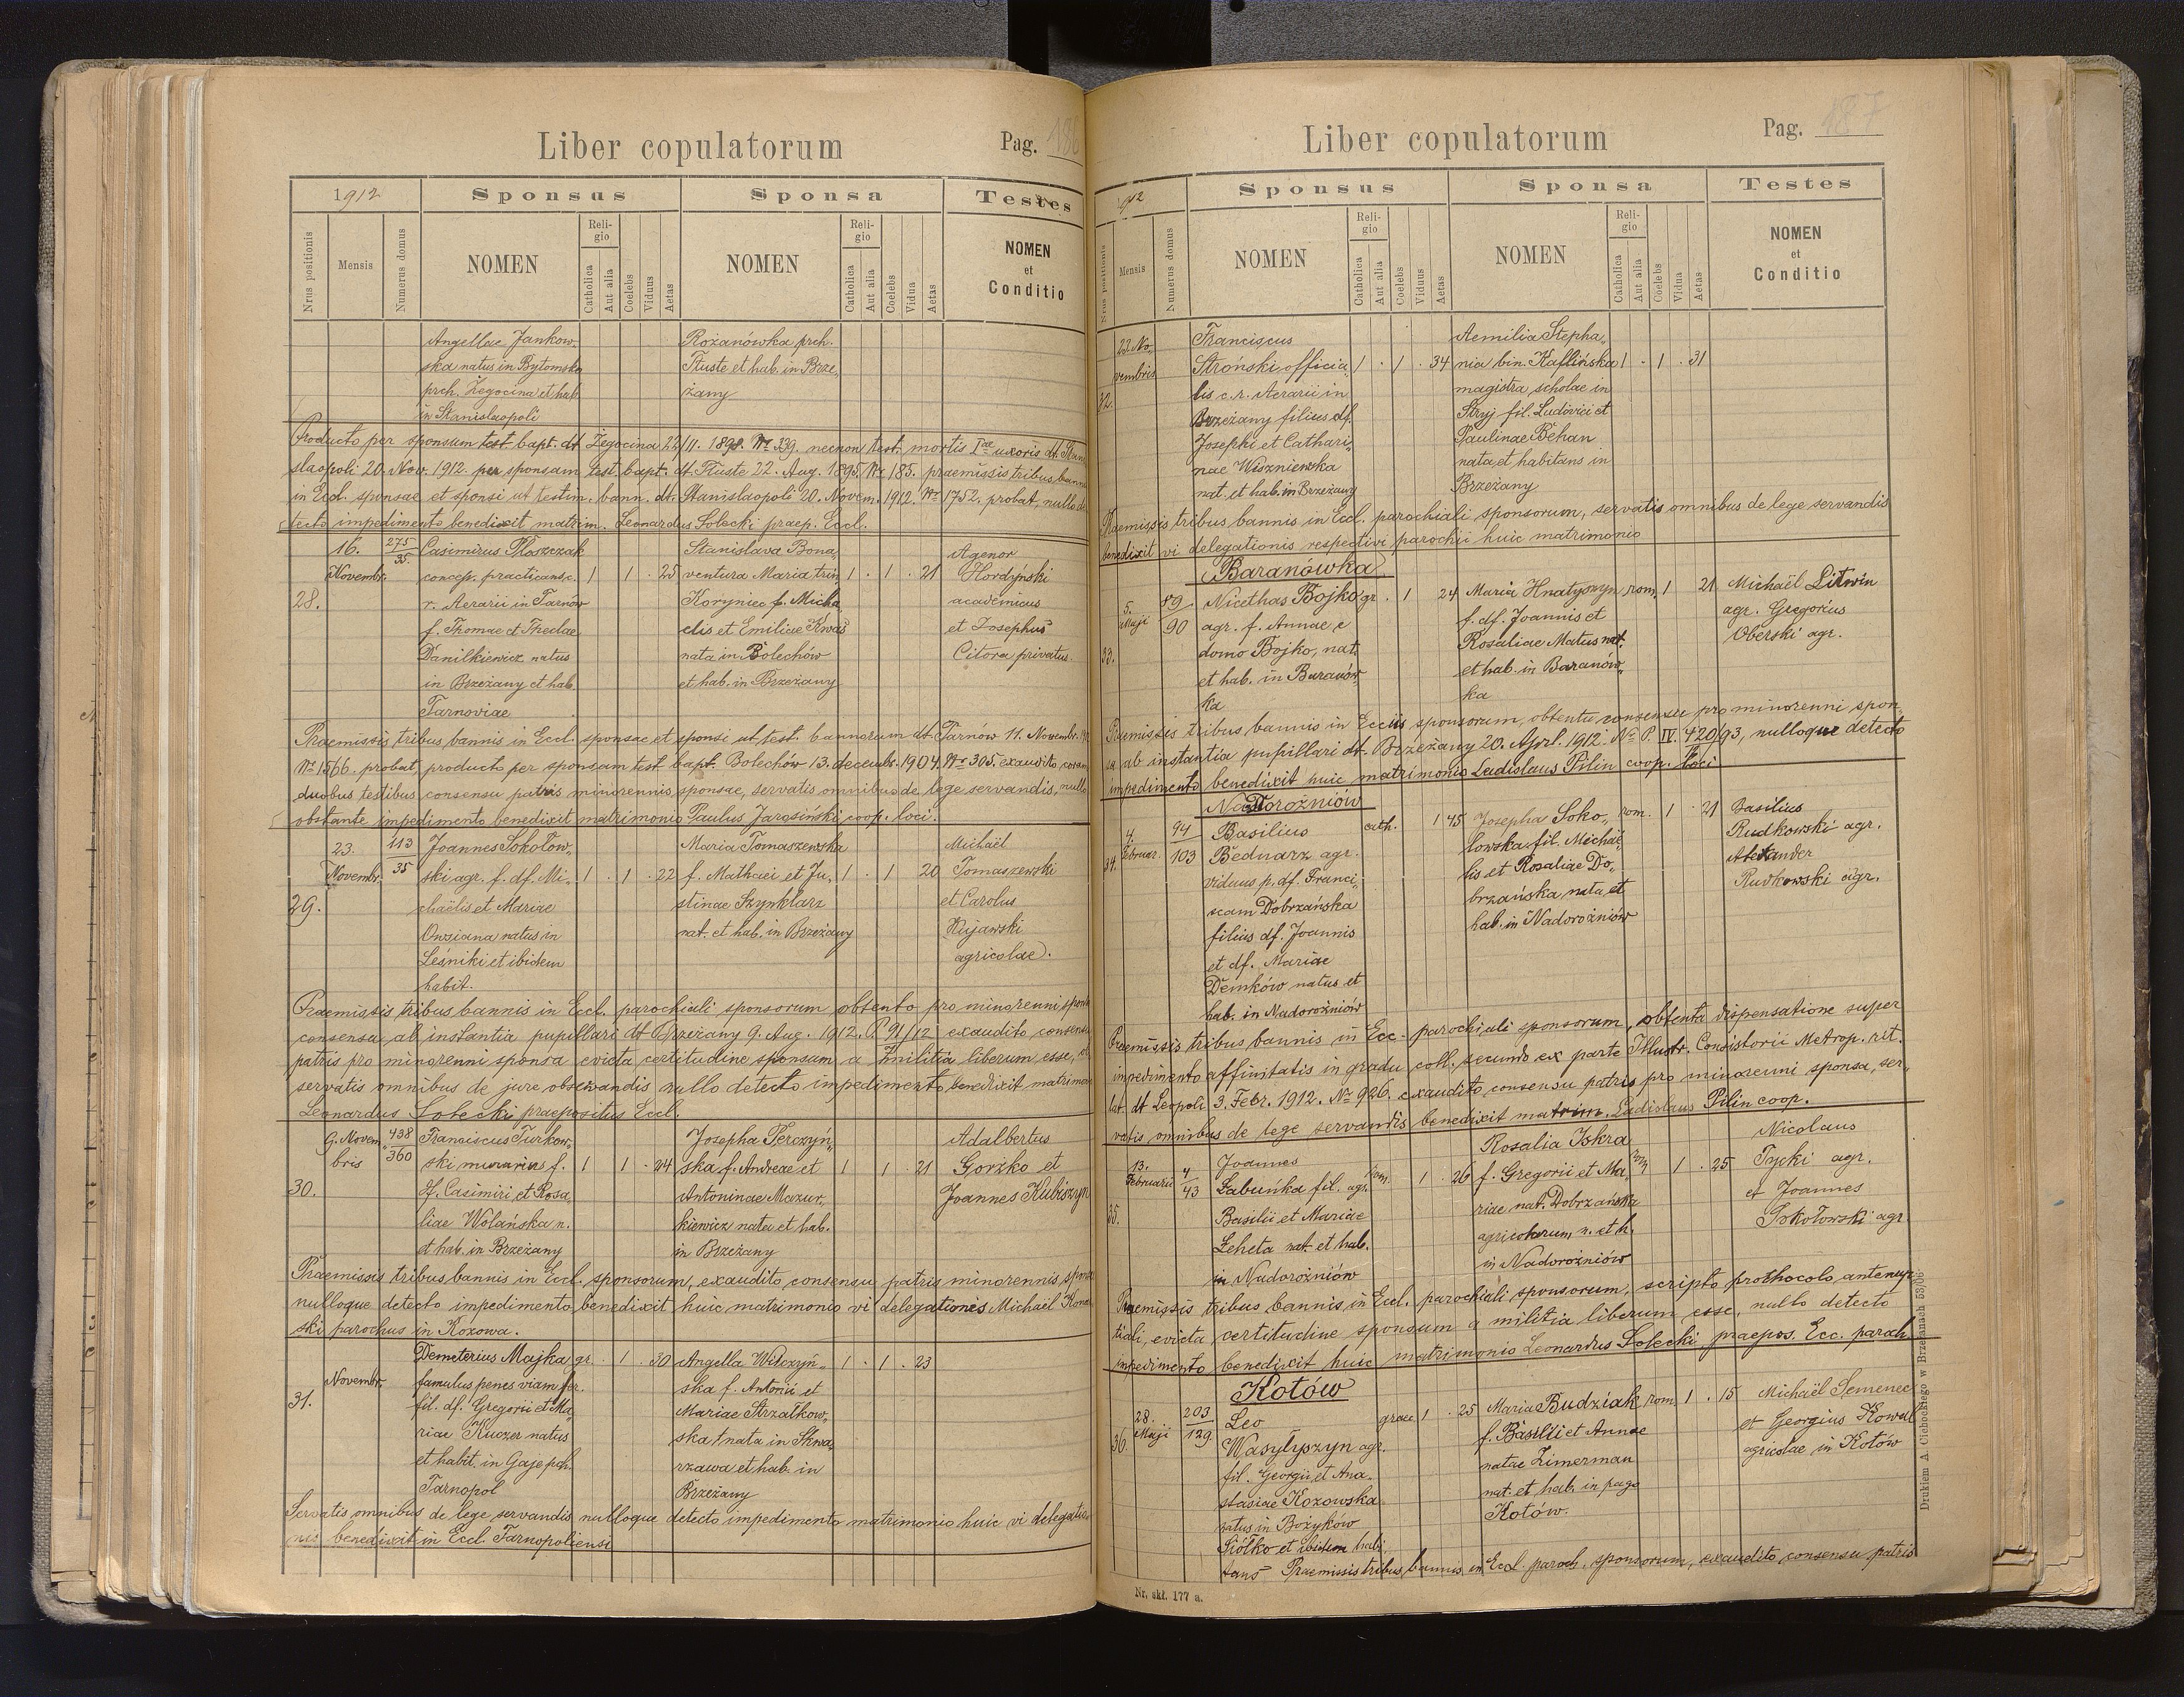 Liber copulatorum
Pag. 186
1912
Sponsus
Sponsa
Testes
Nrus positionis
Mensis
Numerus domus
NOMEN
Religio
Catholica
Aut alia
Coelebs
Viduus
Aetas
NOMEN
Religio
Catholica
Aut alia
Coelebs
Vidua
Aetas
NOMEN
et
Conditio
Angellae Jankow-
ska natus in Bytomsko
prch. Żegocina et hab.
in Stanislaopoli
Rożanówka prch.
Tłuste et hab. in Brze„
żany
Producto per sponsum test. bapt. dt. Żegocina 22/11. 1898. Nr 339. necnon test. mortis Iae uxoris dt. Stani
slaopoli 20. Nov. 1912. per sponsam test. bapt. dt. Tłuste 22. Aug. 1895. Nr 185. praemissis tribus bannis
in Eccl. sponsae et sponsi ut testim. bann. dt. Stanislaopoli 20. Novem. 1912. Nr 1752. probat, nullo de
tecto impedimento benedixit matrim. Leonardus Solecki praep. Eccl.
28.
16.
Novembr.
275
35.
Casimirus Płoszczak
concep. practicans c.
r. Aerarii in Tarnów
f. Thomae et Theclae
Danilkiewicz natus
in Brzeżany et hab.
Tarnoviae
1 1 . 25
Stanislava Bona
ventura Maria trin
Koryniec f. Micha
elis et Emiliae Kwaś
nata in Bolechów
et hab. in Brzeżany
1 . 1 . 21
Agenor
Hordyński
academicus
et Josephus
Citora privatus
Praemissis tribus bannis in Eccl. sponsae et sponsi ut test. bannorum dt. Tarnów 11. Novembr. 1912
Nr 1566. probat, producto per sponsam test. bapt. Bolechów 13. decembr. 1904. Nr 305. exaudito coram
duobus testibus consensu patris minorennis sponsae, servatis omnibus de lege servandis, nullo
obstante impedimento benedixit matrimonio Paulus Jarosiński coop. loci.
29.
23.
Novembr.
113
35
Joannes Sokołow„
ski agr. f. df. Mi„
chaëlis et Mariae
Owsiana natus in
Leśniki et ibidem
habit.
1 . 1 . 22
Maria Tomaszewska
f. Mathaei et Ju„
stinae Szynklarz
nat. et hab. in Brzeżany
1 . 1 20
Michaël
Tomaszewski
et Carolus
Kujawski
agricolae.
Praemissis tribus bannis in Eccl. parochiali sponsorum obtento pro minorenni sponso
consensu ab instantia pupillari dt Brzeżany 9. Aug. 1912. P. 91/12 exaudito consensu
patris pro minorenni sponsa evicta certitudine sponsum a militia liberum esse,
servatis omnibus de jure observandis nullo detecto impedimento benedixit matrimon
Leonardus Solecki praepositus Eccl.
30.
9. Novem„
bris
438
360
Franciscus Turkow„
ski murarius f.
df. Casimiri et Rosa
liae Wolańska n.
et hab. in Brzeżany
1 1 . 24
Josepha Perczyń„
ska f. Andreae et
Antoninae Mazur„
kiewicz nata et hab.
in Brzeżany
1 1 . 21
Adalbertus
Gorżko et
Joannes Kubiszyn
Praemissis tribus bannis in Eccl. sponsorum, exaudito consensu patris minorennis spons
nulloque detecto impedimento benedixit huic matrimonio vi delegationis Michaël
ski parochus in Kozowa.
31.
Novembr.
Demeterius Majka
famulus penes viam fer.
fil. df. Gregorii et Ma
riae Kuczer natus
et habit. in Gaje pch.
Tarnopol
gr. . 1 . 30
Angella Wilczyń„
ska f. Antonii et
Mariae Strzałkow„
ska nata in Skwa„
rzawa et hab. in
Brzeżany
1 . 1 . 23
Servatis omnibus de lege servandis nulloque detecto impedimento matrimonio huic vi delegatio„
nis benedixit in Eccl. Tarnopoliensi
Liber copulatorum
Pag. 187
1912
Sponsus
Sponsa
Testes
Nrus positionis
Mensis
Numerus domus
NOMEN
Religio
Catholica
Aut alia
Coelebs
Viduus
Aetas
NOMEN
Religio
Catholica
Aut alia
Coelebs
Vidua
Aetas
NOMEN
et
Conditio
32.
22. No„
vembris
Franciscus
Stroński officia„
lis c. r. Aerarii in
Brzeżany filius df.
Josephi et Cathari„
nae Wiszniewska
nat. et hab. in Brzeżany
1 . 1 . 34
Aemilia Stepha„
nia bin. Kaflińska
magistra scholae in
Stryj fil. Ludovici et
Paulinae Behan
nata et habitans in
Brzeżany
1 . 1 . 31
Praemissis tribus bannis in Eccl. parochiali sponsorum, servatis omnibus de lege servandis
benedixit vi delegationis respectivi parochi huic matrimonio
Baranówka
33.
5.
Maji
89
90
Nicethas Bojko
agr. f. Annae e
domo Bojko, nat.
et hab. in Baranów„
ka
gr. . 1 24
Maria Hnatyszyn
f. df. Joannis et
Rosaliae Matus nat.
et hab. in Baranów„
ka
rom. 1 21
Michaël Litwin
agr. Gregorius
Oberski agr.
Praemissis tribus bannis in Ecciis sponsorum, obtentu consensu pro minorenni spon„
sa ab instantia pupillari dt. Brzeżany 20. April. 1912. No P. IV. 420/93, nulloque detecto
impedimento benedixit huic matrimonio Ladislaus Pilin coop. loci
Nadorożniów
34.
4.
Februar.
94
103
Basilius
Bednarz agr.
viduus p. df. Franci„
scam Dobrzańska
filius df. Joannis
et df. Mariae
Demków natus et
hab. in Nadorożniów
cath. 1 45
Josepha Soko„
łowska fil. Michaë
lis et Rosaliae Do„
brzańska nata et
hab. in Nadorożniów
rom. 1 . 21
Basilius
Rudkowski agr.
Alexander
Rudkowski agr.
Praemissis tribus bannis in Ecc. parochiali sponsorum, obtenta dispensatione super
impedimento affinitatis in gradu coll. secundo ex parte Illustr. Consistorii Metrop. rit.
lat. dt Leopoli 3. Febr. 1912. No 926. exaudito consensu patris pro minorenni sponsa, ser„
vatis omnibus de lege servandis benedixit matrim. Ladislaus Pilin coop.
35.
13.
Februarii
4
43
Joannes
Łabuńka fil. agr.
Basilii et Mariae
Leheta nat. et hab.
in Nadorożniów
rom. 1 . 26
Rosalia Iskra
f. Gregorii et Ma„
riae nat. Dobrzańska
agricolarum, n. et h.
in Nadorożniów
rom 1 . 25
Nicolaus
Tycki agr.
et Joannes
Sokołowski agr.
Praemissis tribus bannis in Eccl. parochiali sponsorum, scripto prothocolo antenup
tiali, evicta certitudine sponsum a militia liberum esse, nullo detecto
impedimento benedixit huic matrimonio Leonardus Solecki praepos. Ecc. paroh.
Kotów
36.
28.
Maji
203
129
Leo
Wasyłyszyn agr.
fil. Georgii et Ana„
stasiae Kozowska
natus in Bożyków
Siółko et ibidem habi„
tans
graec. 1 . 25
Maria Budziak
f. Basilii et Annae
natae Zimerman
nat. et hab. in pago
Kotów.
rom. 1 . 15
Michaël Semenec
et Georgius Kowal
agricolae in Kotów
Praemissis tribus bannis in Eccl. paroch. sponsorum, exaudito consensu patris
Nr. skł. 177 a.
Drukiem A. Ciechockiego w Brzeżanach 53/06